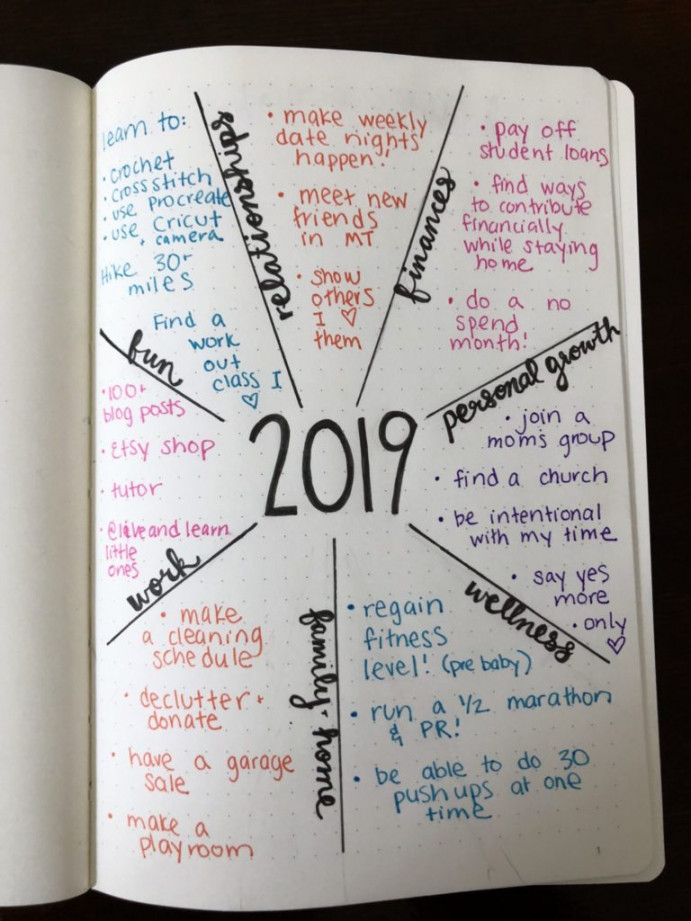 2019
relationships
• make weekly
date nights
happen!
• meet new
friends
in MT
• show
others
I ♡
them
finances
• pay off
student loans
• find ways
to contribute
financially
while staying
home
• do a no
spend
month!
personal growth
• join a
moms group
• find a church
• be intentional
with my time
• say yes
more
• only ♡
wellness
• regain
fitness
level! (pre baby)
• run a 1/2 marathon
& PR!
• be able to do 30
push ups at one
time
family + home
• make
a cleaning
schedule
• declutter +
donate
• have a garage
sale
• make a
playroom
work
• 100+
blog posts
• Etsy shop
• tutor
• @liveandlearn
little
ones
fun
learn to:
• crochet
• cross stitch
• use procreate
• use Cricut
, camera
Hike 30+
miles
Find a
work
out
class I
♡